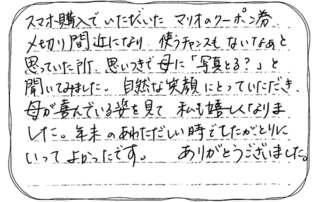 スマホ購入でいただいた マリオのクーポン券
〆切り間近になり 使うチャンスもないなぁと
思っていた所、思いつきで母に「写真とる？」と
聞いてみました。自然な笑顔にとっていただき、
母が喜んでいる姿を見て 私も嬉しくなりま
した。年末のあわただしい時でしたがとりに
いって よかったです。 ありがとうございました。